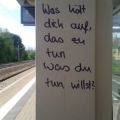 Was hält
dich auf,
das zu
tun
was du
tun willst?